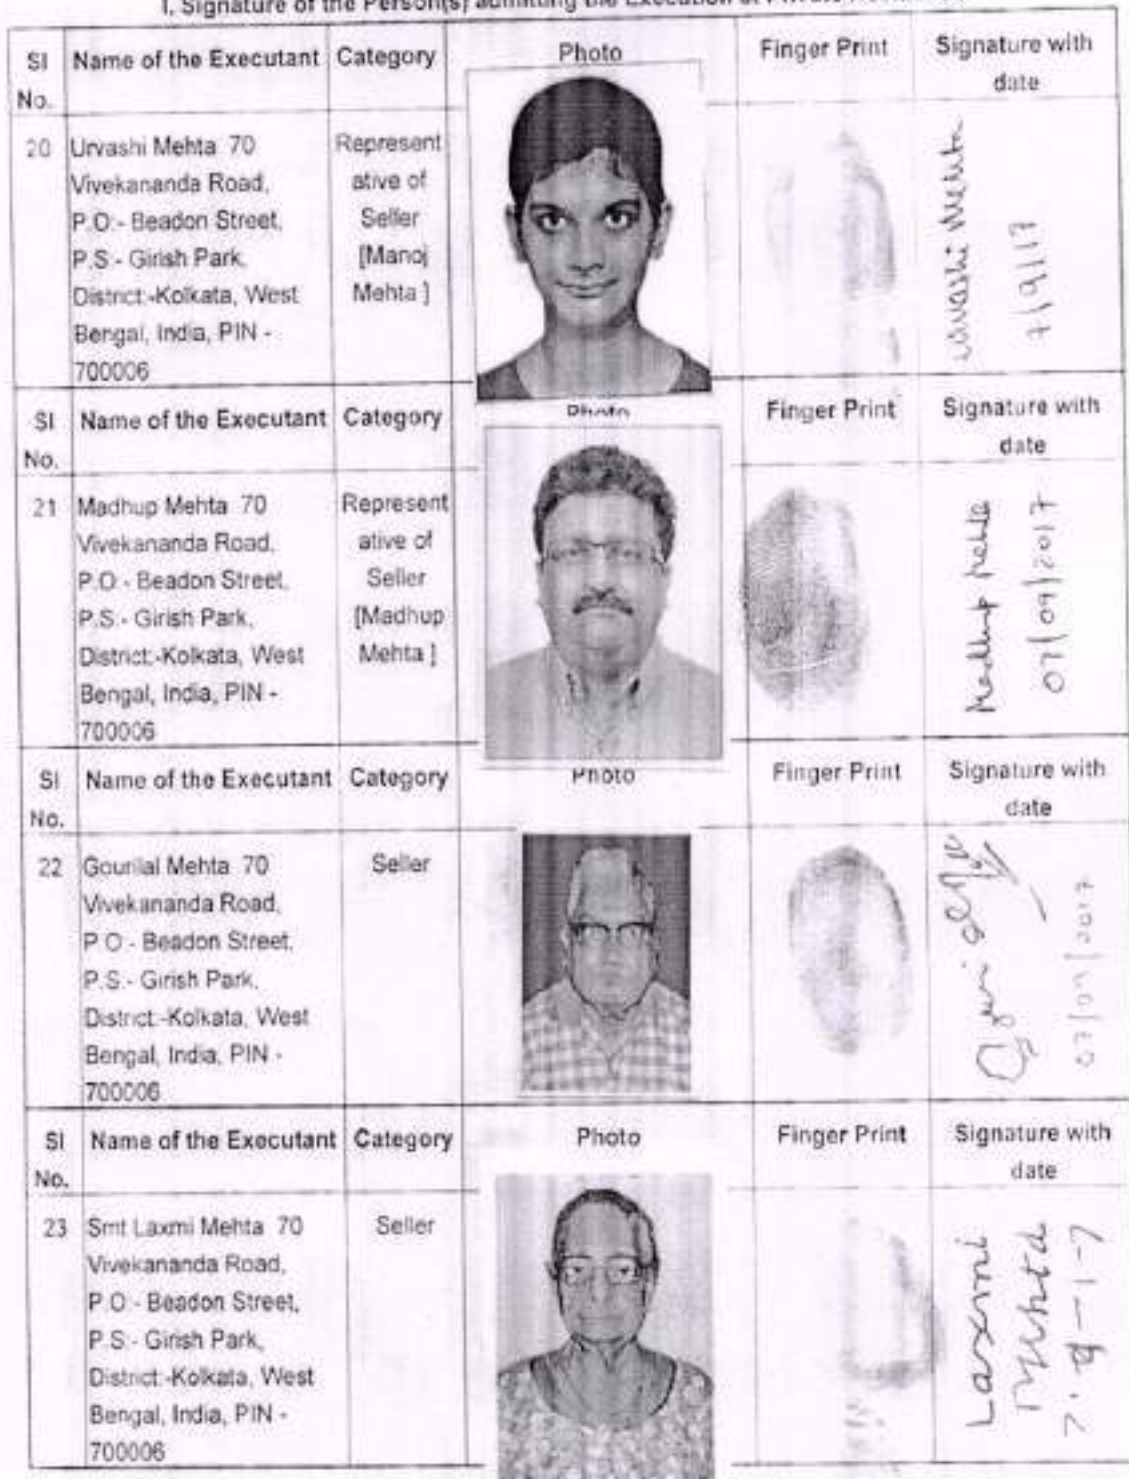 I. Signature of the Person(s) admitting the Execution at Private
Sl No. Name of the Executant Category Photo Finger Print Signature with date
20 Urvashi Mehta 70
Vivekananda Road,
P.O:- Beadon Street,
P.S:- Girish Park,
District:-Kolkata, West
Bengal, India, PIN -
700006
Represent
ative of
Seller
[Manoj
Mehta ]
Urvashi Mehta
7/9/17
Sl No. Name of the Executant Category Photo Finger Print Signature with date
21 Madhup Mehta 70
Vivekananda Road,
P.O:- Beadon Street,
P.S:- Girish Park,
District:-Kolkata, West
Bengal, India, PIN -
700006
Represent
ative of
Seller
[Madhup
Mehta ]
Madhup Mehta
07/09/2017
Sl No. Name of the Executant Category Photo Finger Print Signature with date
22 Gourilal Mehta 70
Vivekananda Road,
P.O:- Beadon Street,
P.S:- Girish Park,
District:-Kolkata, West
Bengal, India, PIN -
700006
Seller
Sl No. Name of the Executant Category Photo Finger Print Signature with date
23 Smt Laxmi Mehta 70
Vivekananda Road,
P.O:- Beadon Street,
P.S:- Girish Park,
District:-Kolkata, West
Bengal, India, PIN -
700006
Seller
Laxmi
Mehta